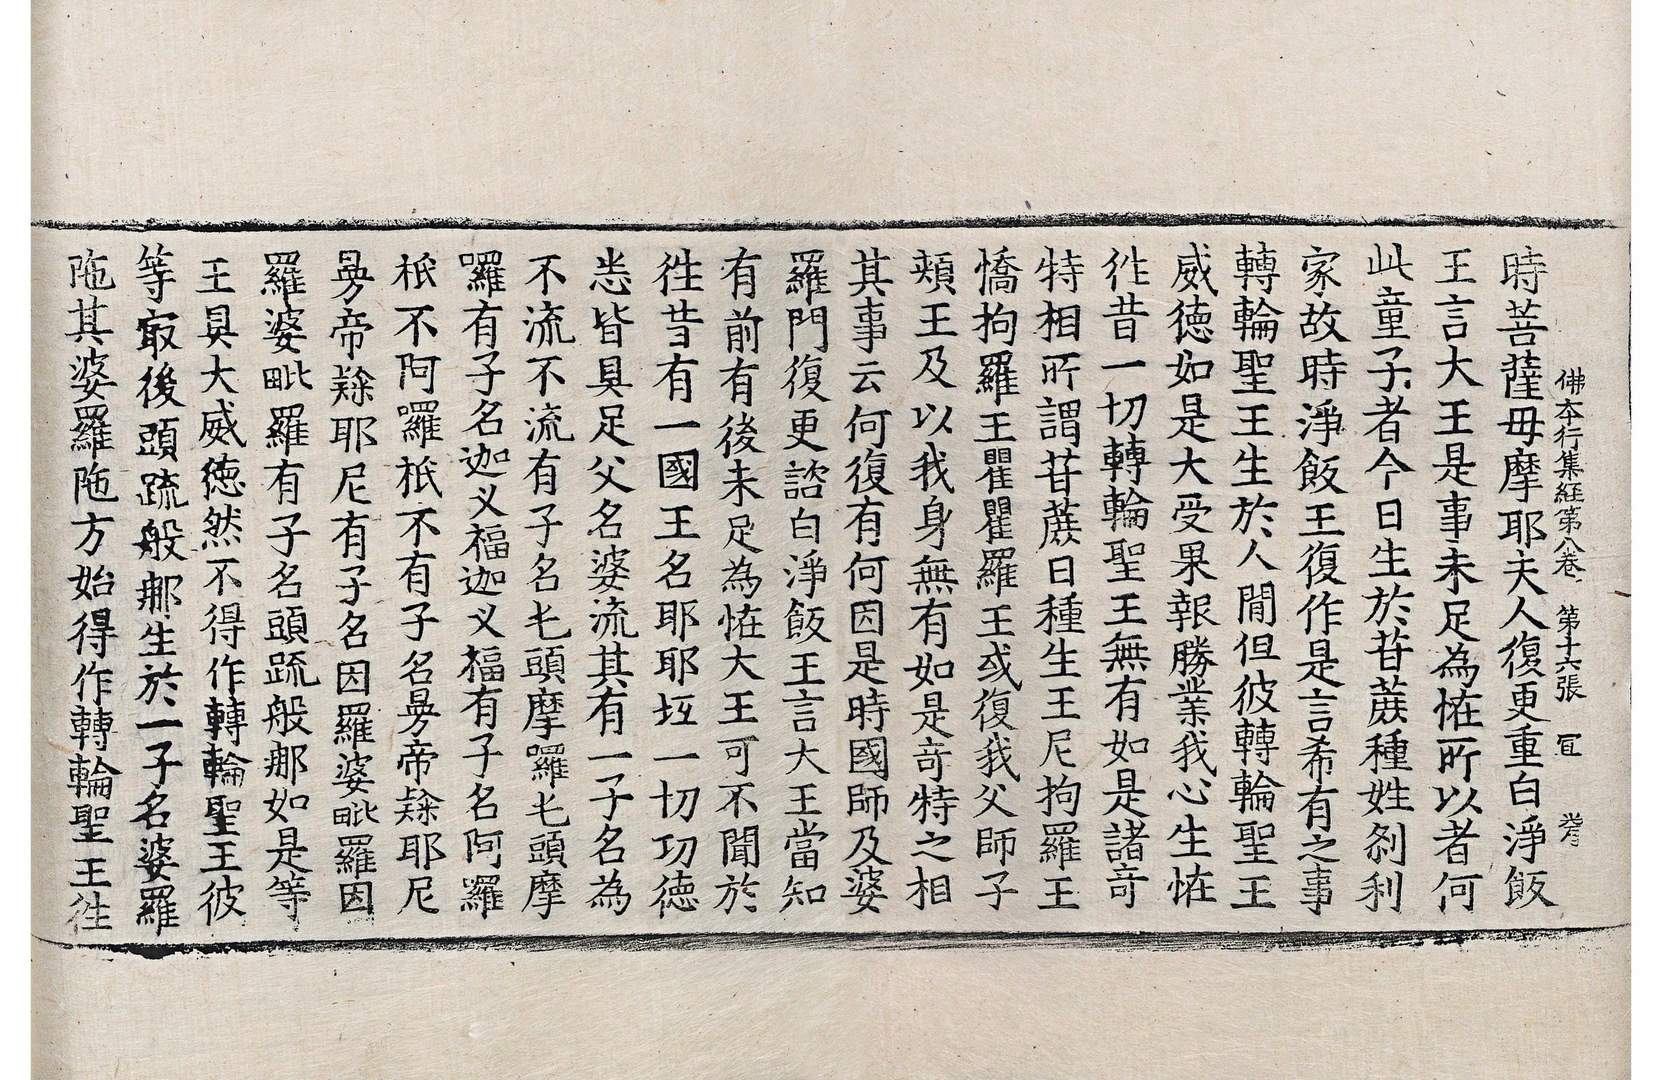 佛本行集経第八卷 第十六張 冝
時菩薩母摩耶夫人復更重白淨飯
王言大王是事未足為恠所以者何
此童子者今日生於苷蔗種姓剎利
家故時淨飯王復作是言希有之事
轉輪聖王生於人間但彼轉輪聖王
威德如是大受果報勝業我心生恠
徃昔一切轉輪聖王無有如是諸竒
特相所謂苷蔗日種生王尼拘羅王
憍拘羅王瞿瞿羅王或復我父師子
頰王及以我身無有如是竒特之相
其事云何復有何因是時國師及婆
羅門復更諮白淨飯王言大王當知
有前有後未足為恠大王可不聞於
徃昔有一國王名耶耶坘一切功德
悉皆具足父名婆流其有一子名為
不流不流有子名乇頭摩囉乇頭摩
囉有子名迦叉福迦叉福有子名阿囉
祇不阿囉祇不有子名昘帝㗚耶尼
昘帝㗚耶尼有子名因羅婆毗羅因
羅婆毗羅有子名頭䟽般那如是等
王具大威德然不得作轉輪聖王彼
等最後頭䟽般那生於一子名婆羅
陁其婆羅陁方始得作轉輪聖王徃